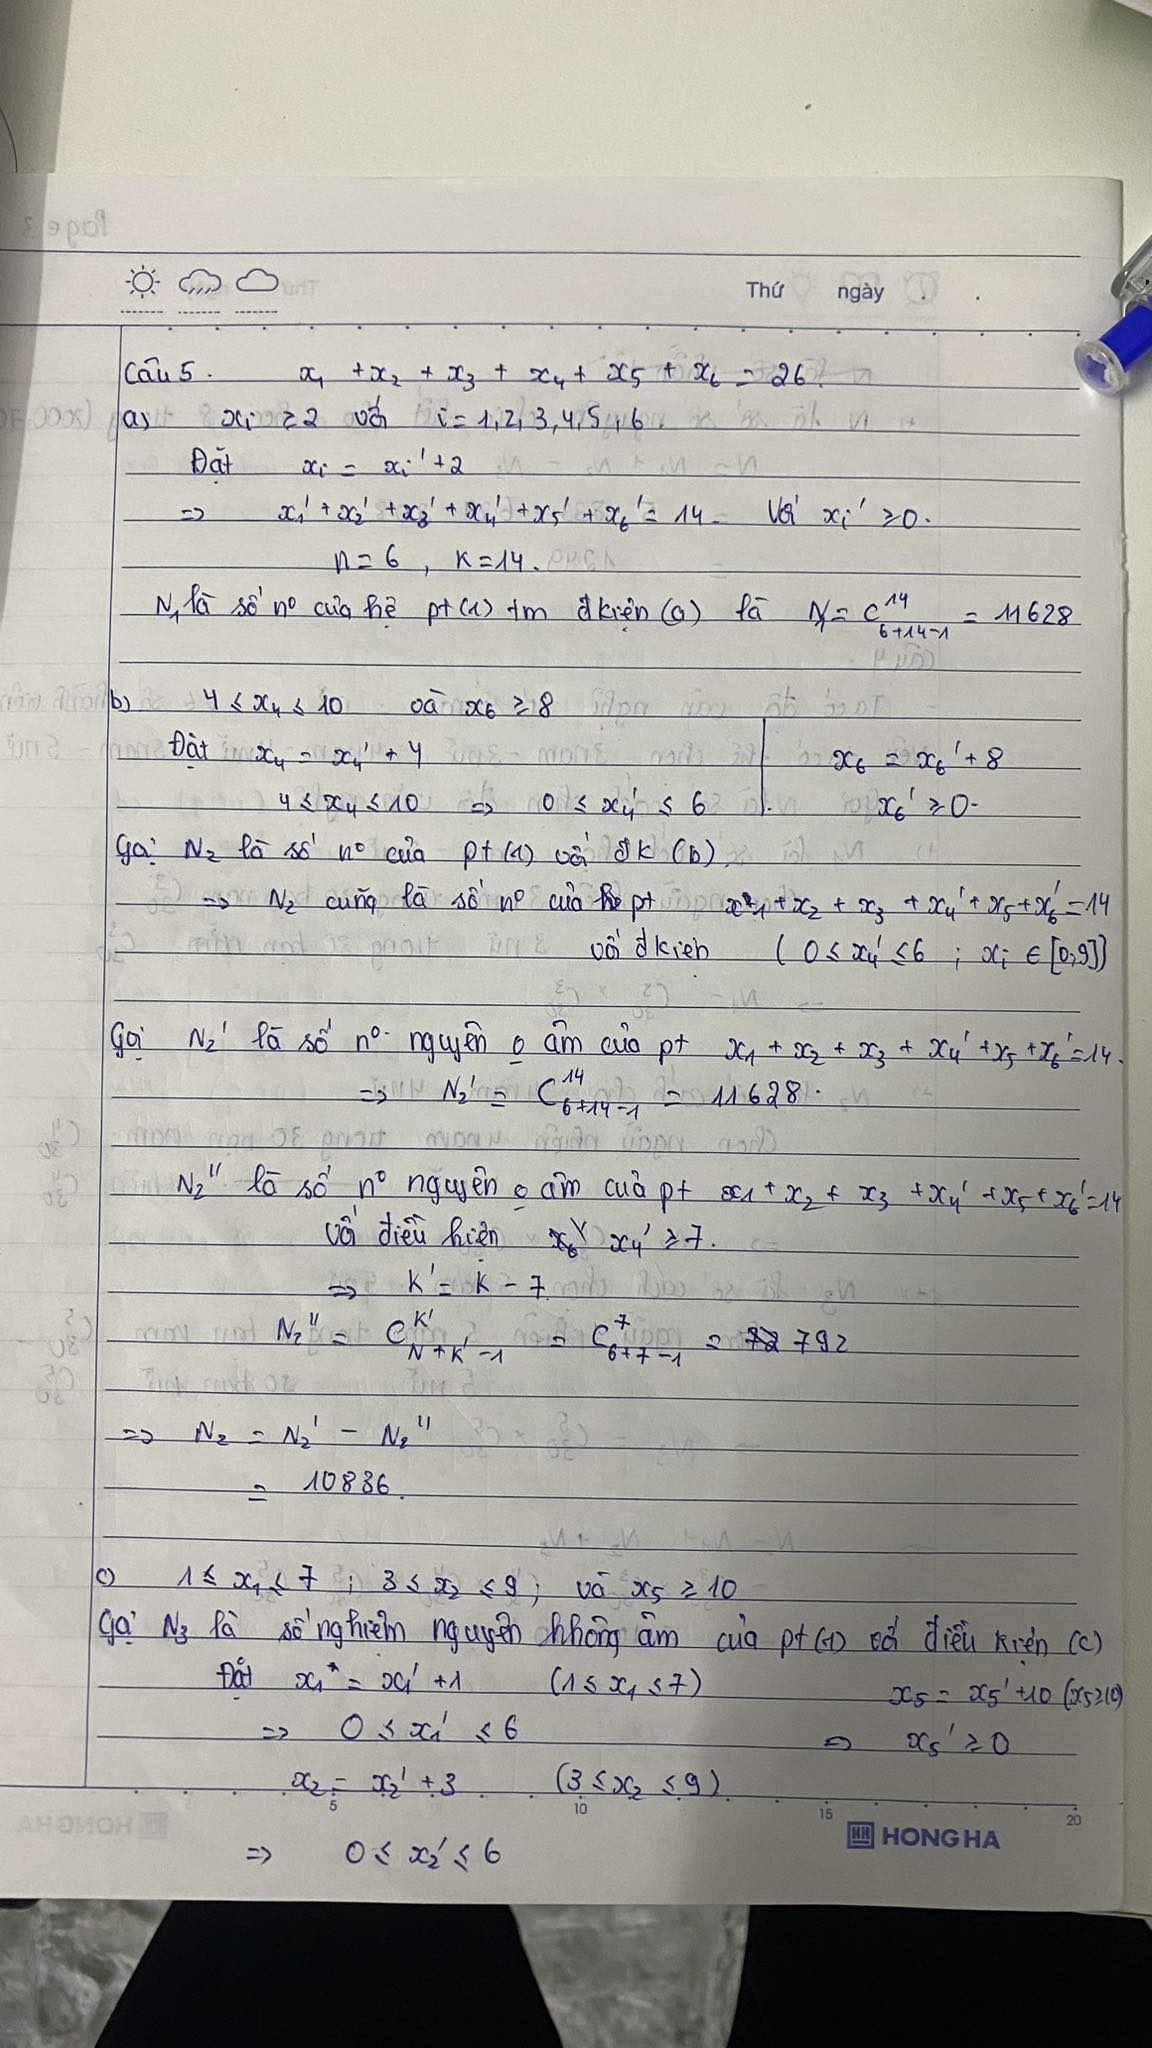 Thứ ngày
Câu 5. x₁ + x₂ + x₃ + x₄ + x₅ + x₆ = 26.
a) xi ≥ 2 với i = 1, 2, 3, 4, 5, 6.
Đặt xi = xi' + 2
=> x₁' + x₂' + x₃' + x₄' + x₅' + x₆' = 14. Với xi' ≥ 0.
n = 6, k = 14.
N₁ là số n° của hệ pt(1) tm đkiện (a) là N₁ = C¹⁴₆₊₁₄₋₁ = 11628
b) 4 ≤ x₄ ≤ 10 và x₆ ≥ 8
Đặt x₄ = x₄' + 4 x₆ = x₆' + 8
4 ≤ x₄ ≤ 10 => 0 ≤ x₄' ≤ 6 x₆' ≥ 0.
Gọi N₂ là số n° của pt(1) với đk (b)
=> N₂ cũng là số n° của pt x₁ + x₂ + x₃ + x₄' + x₅ + x₆' = 14
với đkiện (0 ≤ x₄' ≤ 6 ; xi ∈ [0,9])
Gọi N₂' là số n° nguyên o âm của pt x₁ + x₂ + x₃ + x₄' + x₅ + x₆' = 14.
=> N₂' = C¹⁴₆₊₁₄₋₁ = 11628.
N₂'' là số n° nguyên o âm của pt x₁ + x₂ + x₃ + x₄' + x₅ + x₆' = 14
với điều kiện x₄' ≥ 7.
=> K' = K - 7
N₂'' = Cᴷ'_N+K'-1 = C⁷₆₊₇₋₁ = 792
=> N₂ = N₂' - N₂''
= 10836.
c) 1 ≤ x₁ ≤ 7 ; 3 ≤ x₂ ≤ 9 ; và x₅ ≥ 10
Gọi N₃ là số nghiệm nguyên không âm của pt(1) với điều kiện (c)
Đặt x₁ = x₁' + 1 (1 ≤ x₁ ≤ 7) x₅ = x₅' + 10 (x₅ ≥ 10)
=> 0 ≤ x₁' ≤ 6 => x₅' ≥ 0
x₂ = x₂' + 3 (3 ≤ x₂ ≤ 9)
5 10 15 20
HH HONG HA
=> 0 ≤ x₂' ≤ 6